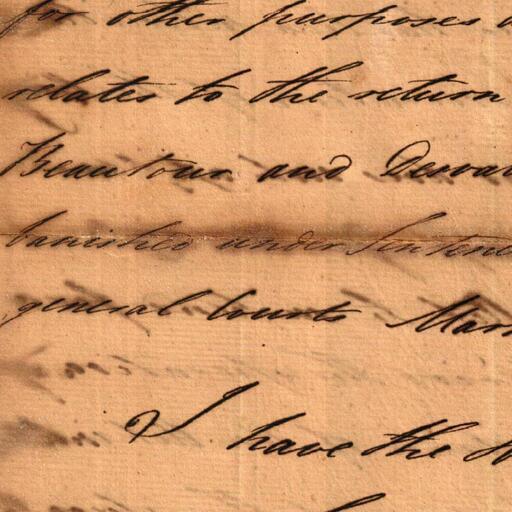 for other purposes
relates to the return
Beautour and
banished under Sentence
general Courts Mar
I have the